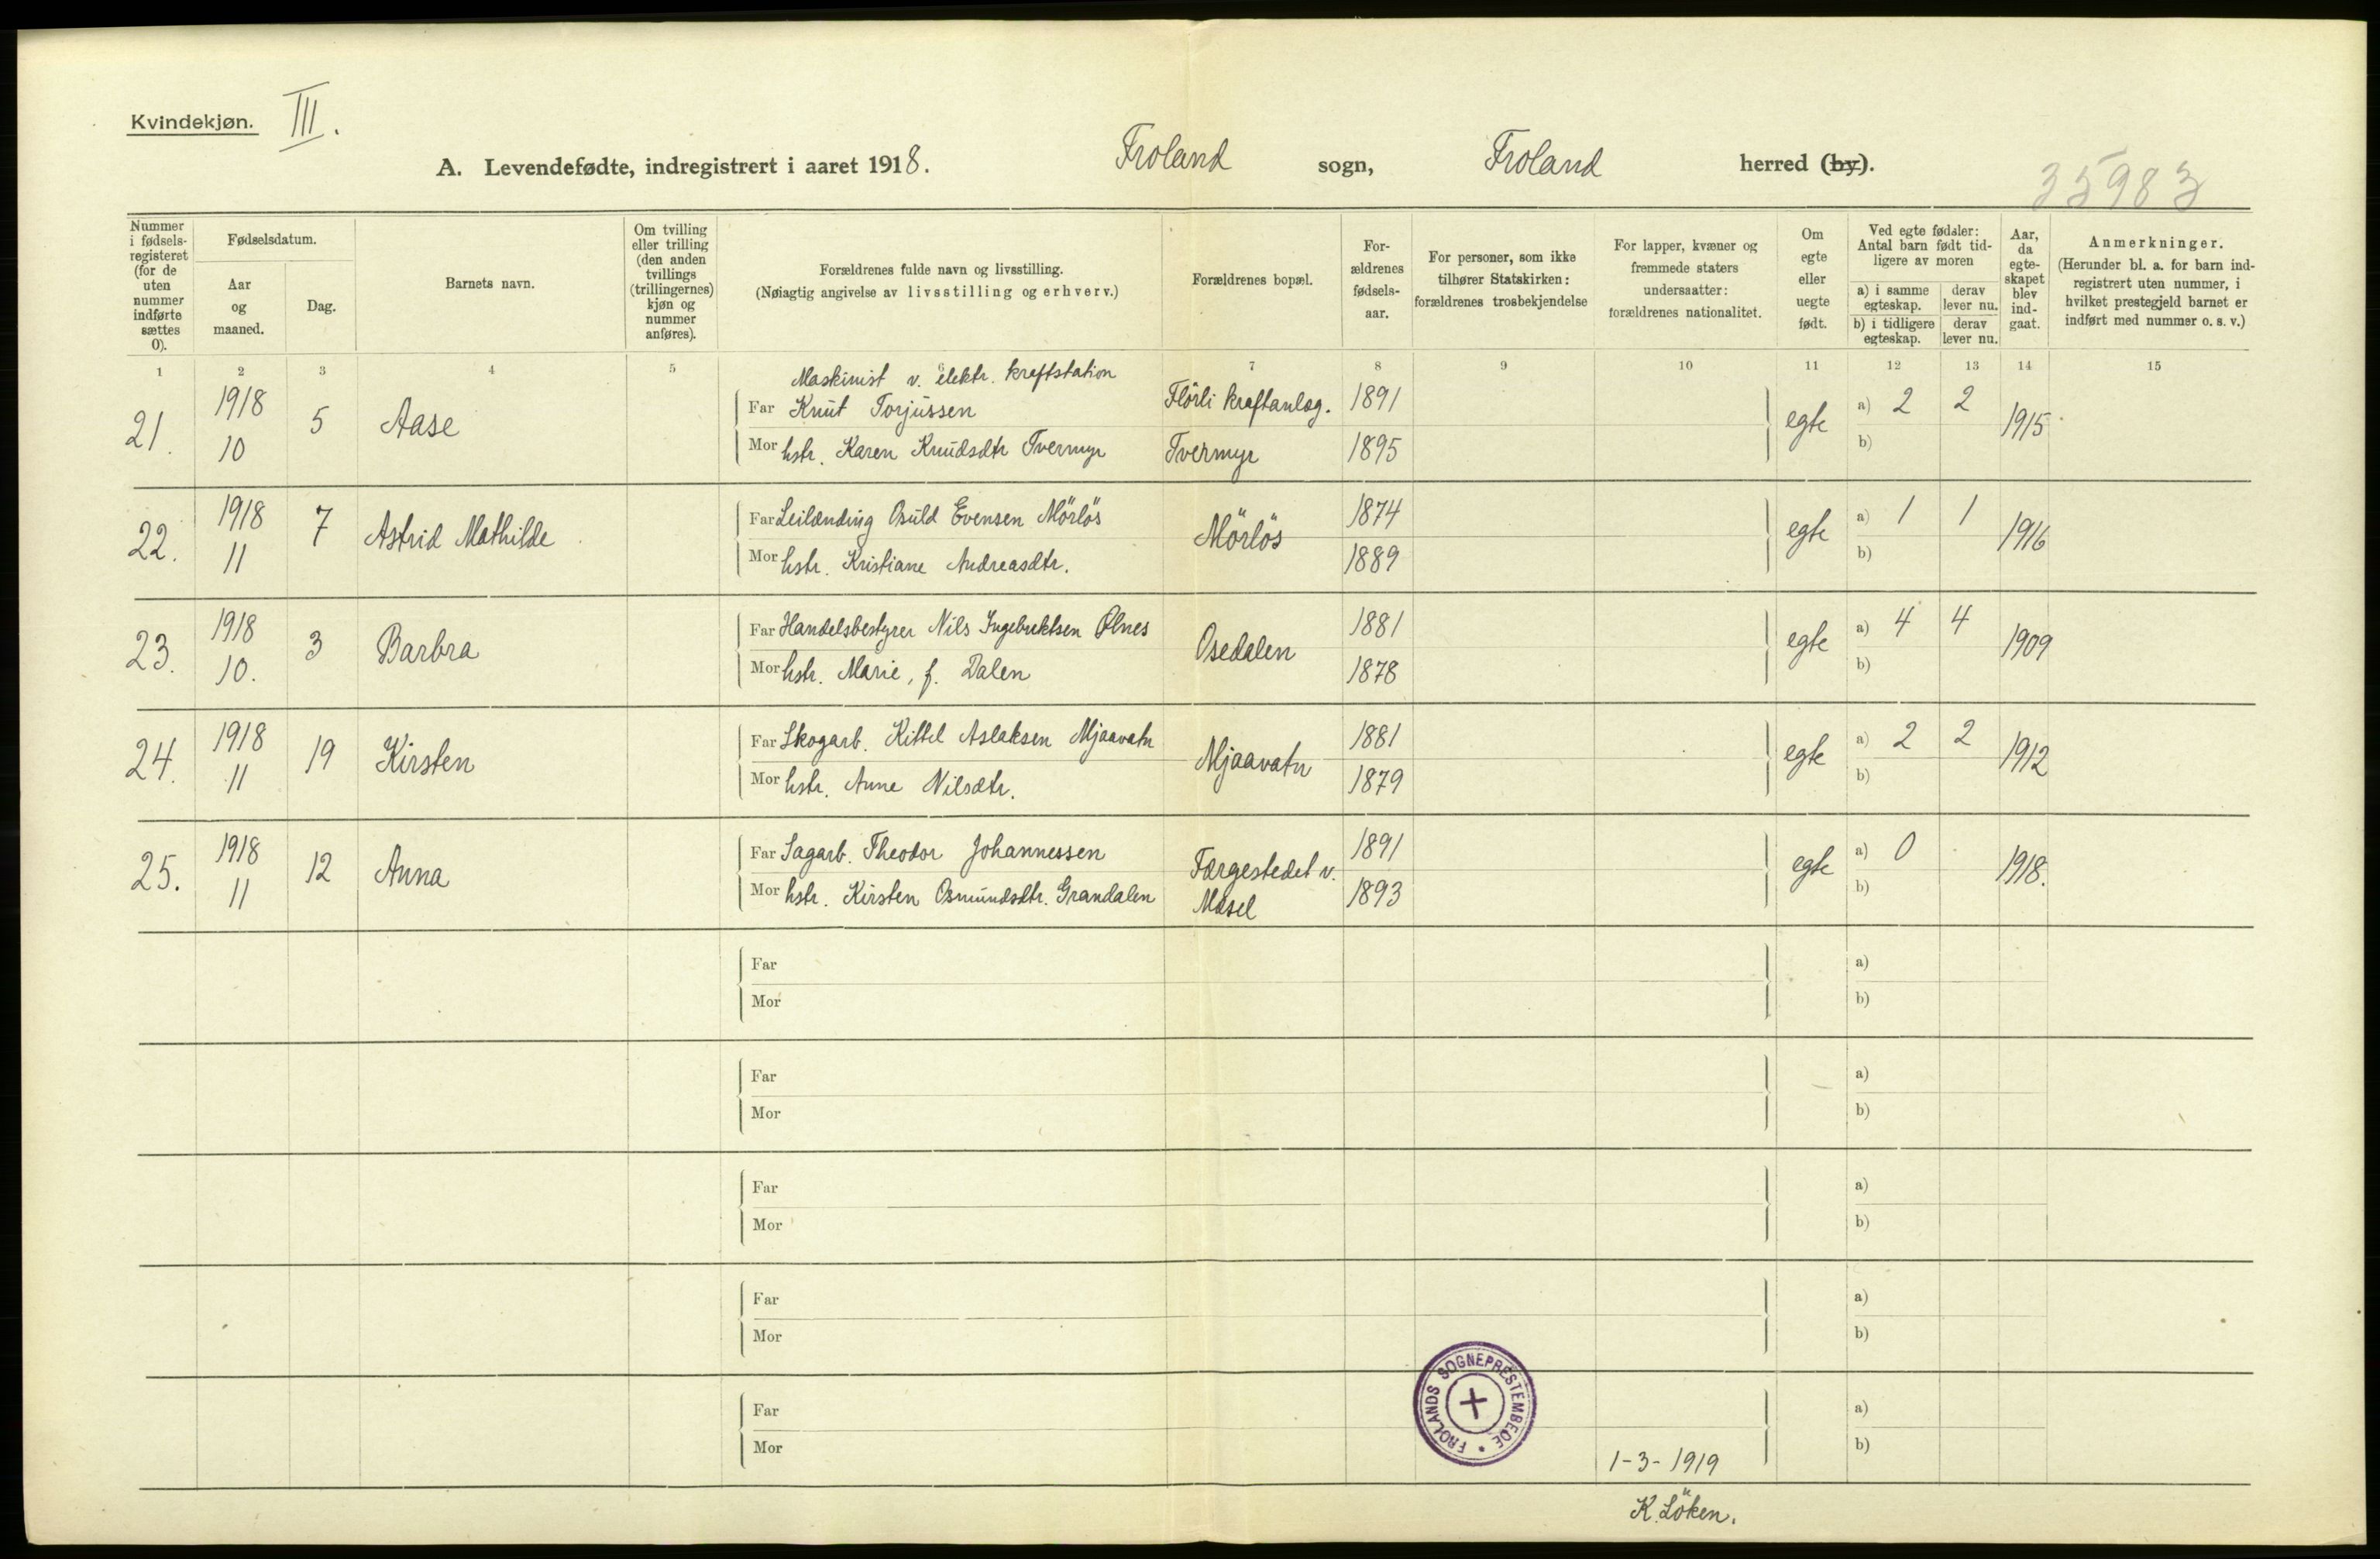 Kvindekjøn. III.
A. Levendefødte, indregistrert i aaret 1918. Froland sogn, Froland herred (by).
35983
Nummer i fødsels-registeret (for de uten nummer indførte sættes 0).
Fødselsdatum.
Aar og maaned.
Dag.
Barnets navn.
Om tvilling eller trilling (den anden tvillings (trillingernes) kjøn og nummer anføres).
Forældrenes fulde navn og livsstilling.
(Nøiagtig angivelse av livsstilling og erhverv.)
Forældrenes bopæl.
For-ældrenes fødsels-aar.
For personer, som ikke tilhører Statskirken: forældrenes trosbekjendelse
For lapper, kvæner og fremmede staters undersaatter: forældrenes nationalitet.
Om egte eller uegte født.
Ved egte fødsler: Antal barn født tid-ligere av moren
a) i samme egteskap. derav lever nu.
b) i tidligere egteskap. derav lever nu.
Aar, da egte-skapet blev ind-gaat.
Anmerkninger.
(Herunder bl. a. for barn ind-registrert uten nummer, i hvilket prestegjeld barnet er indført med nummer o. s. v.)
1 2 3 4 5 6 7 8 9 10 11 12 13 14 15
Maskinist v. elektr. kraftstation
21. 1918 10 5 Aase
Far Knut Torjussen Flörli kraftanlæg. 1891 egte a) 2 2 1915
Mor hstr. Karen Knudsdtr Tvermyr Tvermyr 1895 b)
22. 1918 11 7 Astrid Mathilde
Far Leilænding Osuld Evensen Mörlös Mörlös 1874 egte a) 1 1 1916
Mor hstr. Kristiane Andreasdtr. 1889 b)
23. 1918 10. 3 Barbra
Far Handelsbestyrer Nils Ingebrektsen Ølnes Osedalen 1881 egte a) 4 4 1909
Mor hstr. Marie, f. Dalen 1878 b)
24. 1918 11 19 Kirsten
Far Skogarb. Kittel Aslaksen Mjaavatn Mjaavatn 1881 egte a) 2 2 1912
Mor hstr. Anne Nilsdtr. 1879 b)
25. 1918 11 12 Anna
Far Sagarb. Theodor Johannessen Færgestedet v. 1891 egte a) 0 1918.
Mor hstr. Kirsten Osmundsdtr. Grandalen Mæsel 1893 b)
Far a)
Mor b)
Far a)
Mor b)
Far a)
Mor b)
Far a)
Mor b)
Far a)
Mor b)
FROLANDS SOGNEPRESTEMBEDE
1-3-1919
K. Löken.